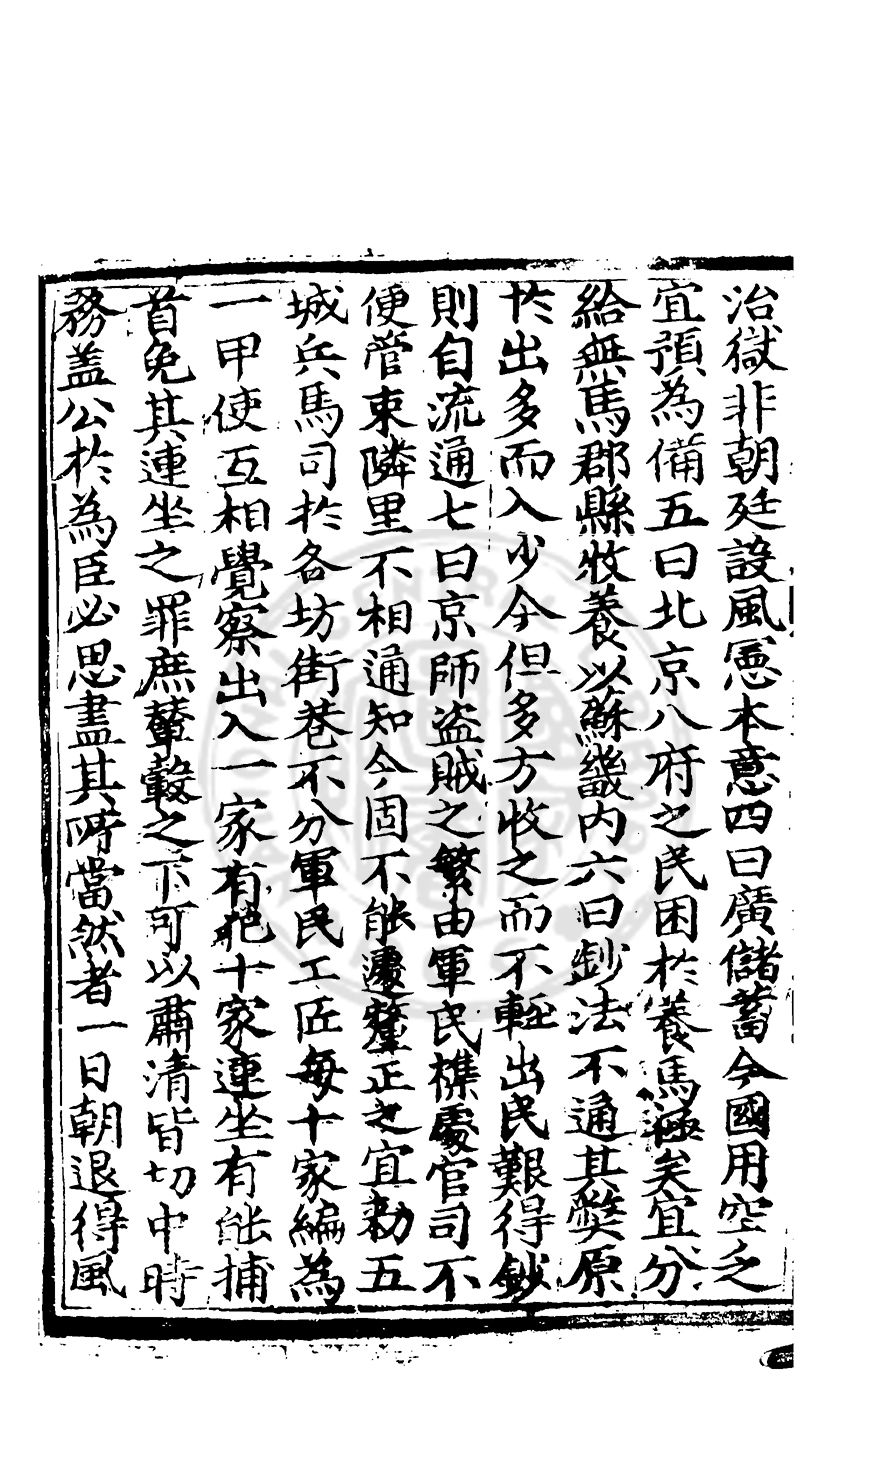 治獄非朝廷設風憲本意四曰廣儲蓄今國用空乏
宜預為備五曰北京八府之民困於養馬極矣宜分
給無馬郡縣牧養以蘇畿內六曰鈔法不通其弊原
於出多而入少今但多方收之而不輕出民艱得鈔
則自流通七曰京師盜賊之繁由軍民襍處官司不
便管束隣里不相通知今固不能遽釐正之宜勑五
城兵馬司於各坊街巷不分軍民工匠每十家編為
一甲使互相覺察出入一家有犯十家連坐有能捕
首免其連坐之罪庶輦轂之下可以肅清皆切中時
務盖公於為臣必思盡其所當然者一日朝退得風